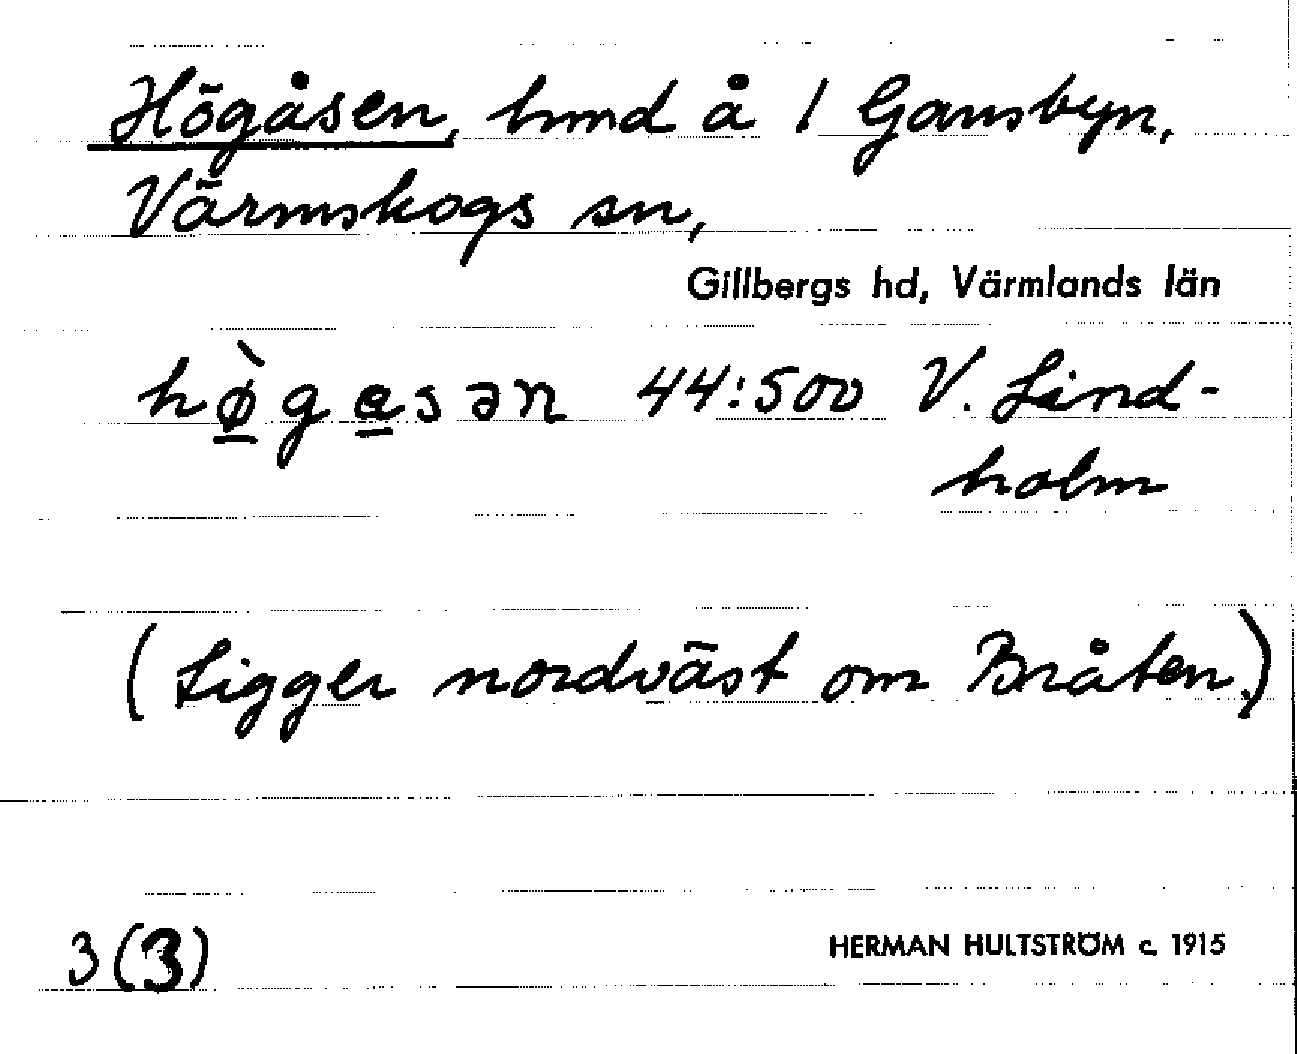 Högåsen, hmd å 1 Gansbyn,
Värmskogs sn,
Gillbergs hd, Värmlands län
hø̲̀ga̲sən 44:500 V. Lind-
holm
(Ligger nordväst om Bråten.)
3(3)
HERMAN HULTSTRÖM c. 1915